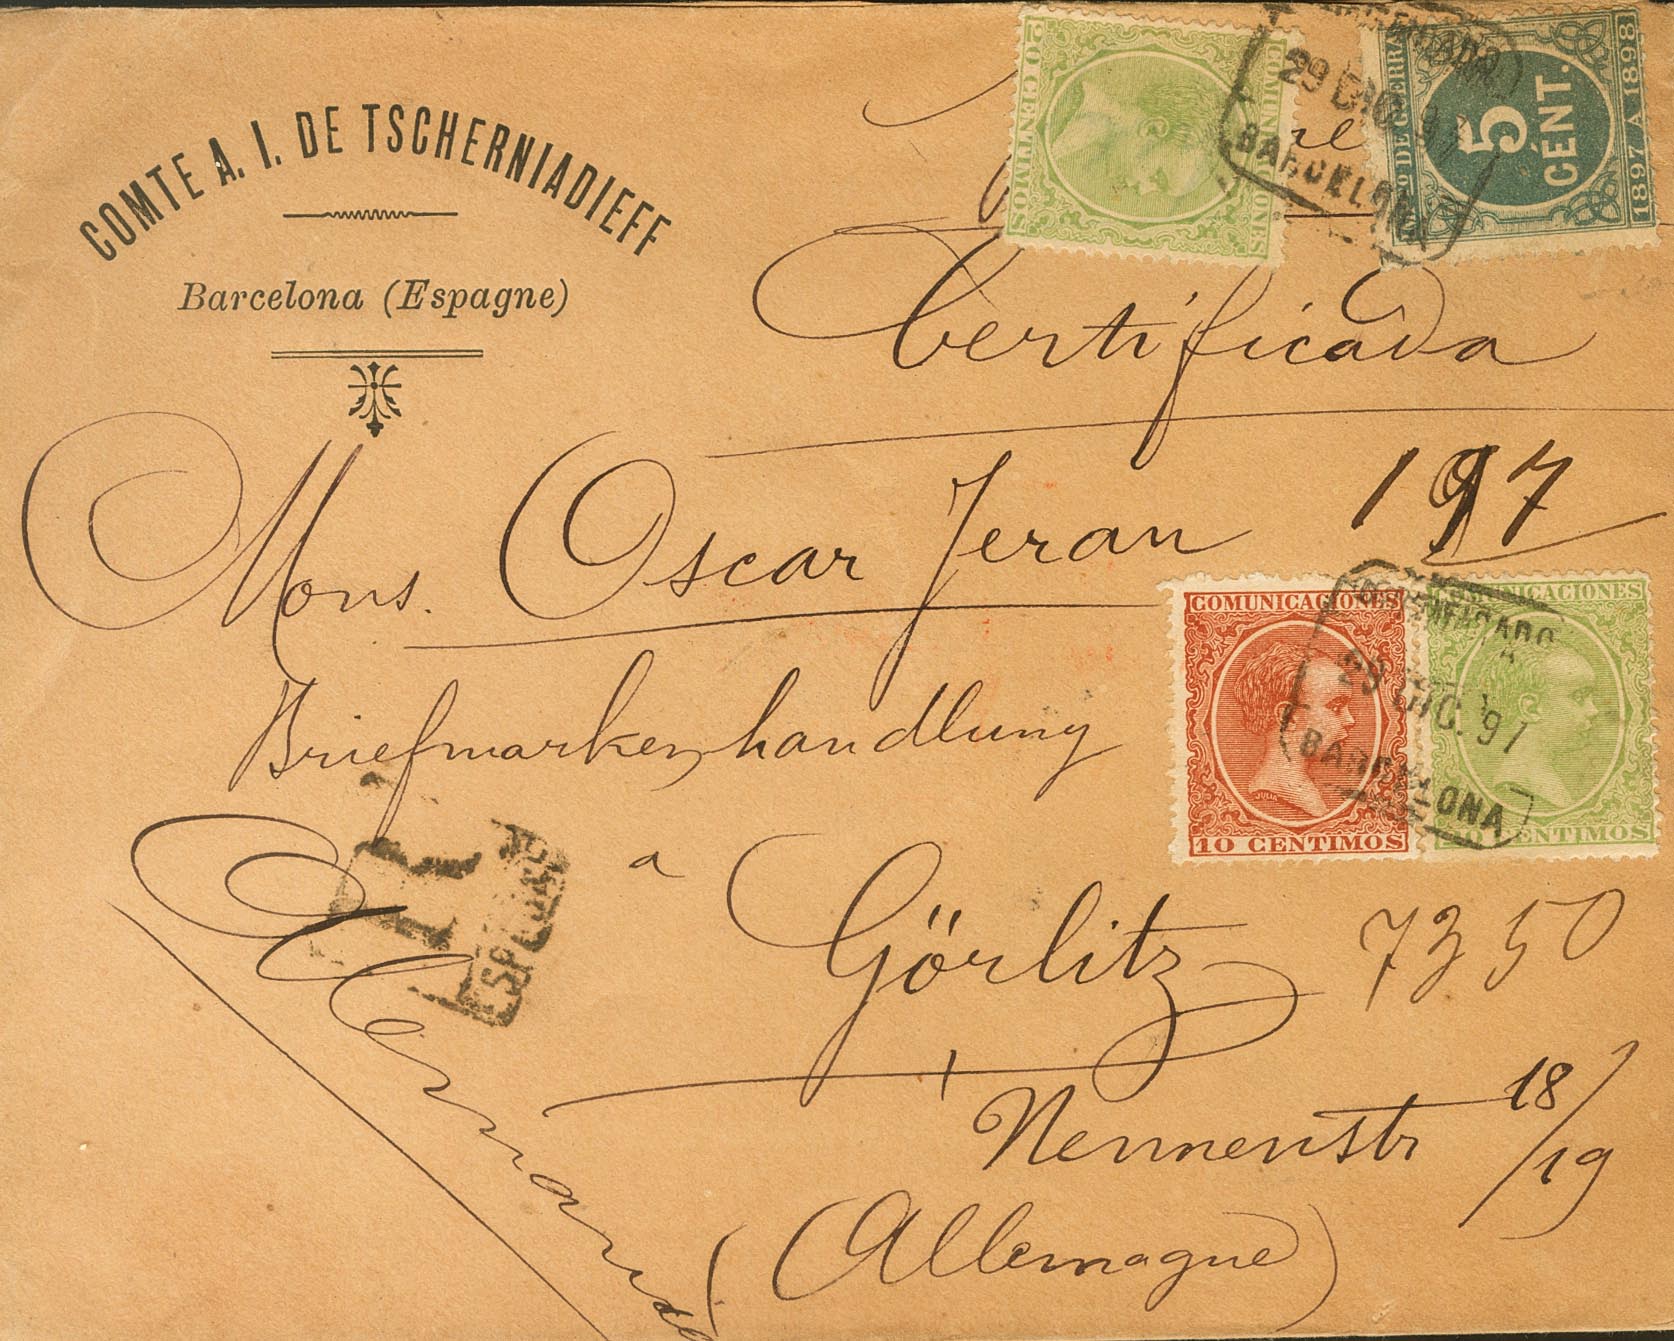 COMTE A. I. DE TSCHERNIADIEFF
Barcelona (Espagne)
20 CENTIMOS
COMUNICACIONES
29 DIC 97
BARCELONA
DE GUERRA
5
CÉNT.
1897 A 1898
Certificada
197
Mons. Oscar Jeran
Briefmarkenhandlung
COMUNICACIONES
JULIA
10 CENTIMOS
COMUNICACIONES
CENTIMOS
29 DIC. 97
BARCELONA
a
Görlitz
7350
18/19
(Allemagne)